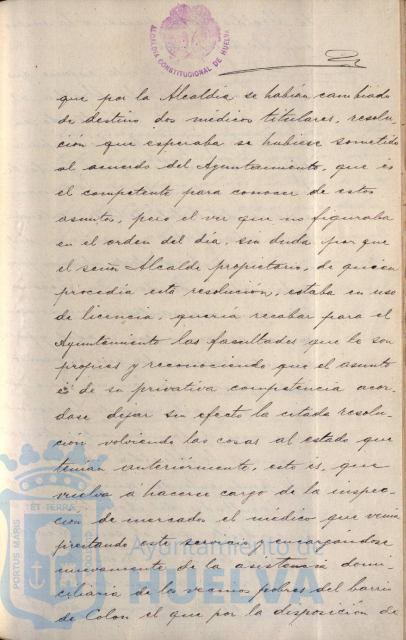 ALCALDIA CONSTITUCIONAL DE HUELVA
que por la Alcaldia se habian cambiado
de destino dos médicos titulares, resolu-
ción que esperaba se hubiese sometido
al acuerdo del Ayuntamiento, que es
el competente para conocer de estos
asuntos, pero el ver que no figuraba
en el orden del dia, sin duda por que
el señor Alcalde propietario, de quien
procedia esta resolución, estaba en uso
de licencia, queria recabar para el
Ayuntamiento las facultades que le son
propias y reconociendo que el asunto
es de su privativa competencia acor-
dase dejar sin efecto la citada resolu-
ción volviendo las cosas al estado que
tenian anteriormente, esto es, que
vuelva á hacerse cargo de la inspec-
ción de mercados el médico que venia
prestando este servicio y encargandose
nuevamente de la asistencia domi-
ciliaria de los vecinos pobres del barrio
de Colon el que por la disposición de
PORTUS MARIS
ET TERRÆ
Ayuntamiento de
HUELVA